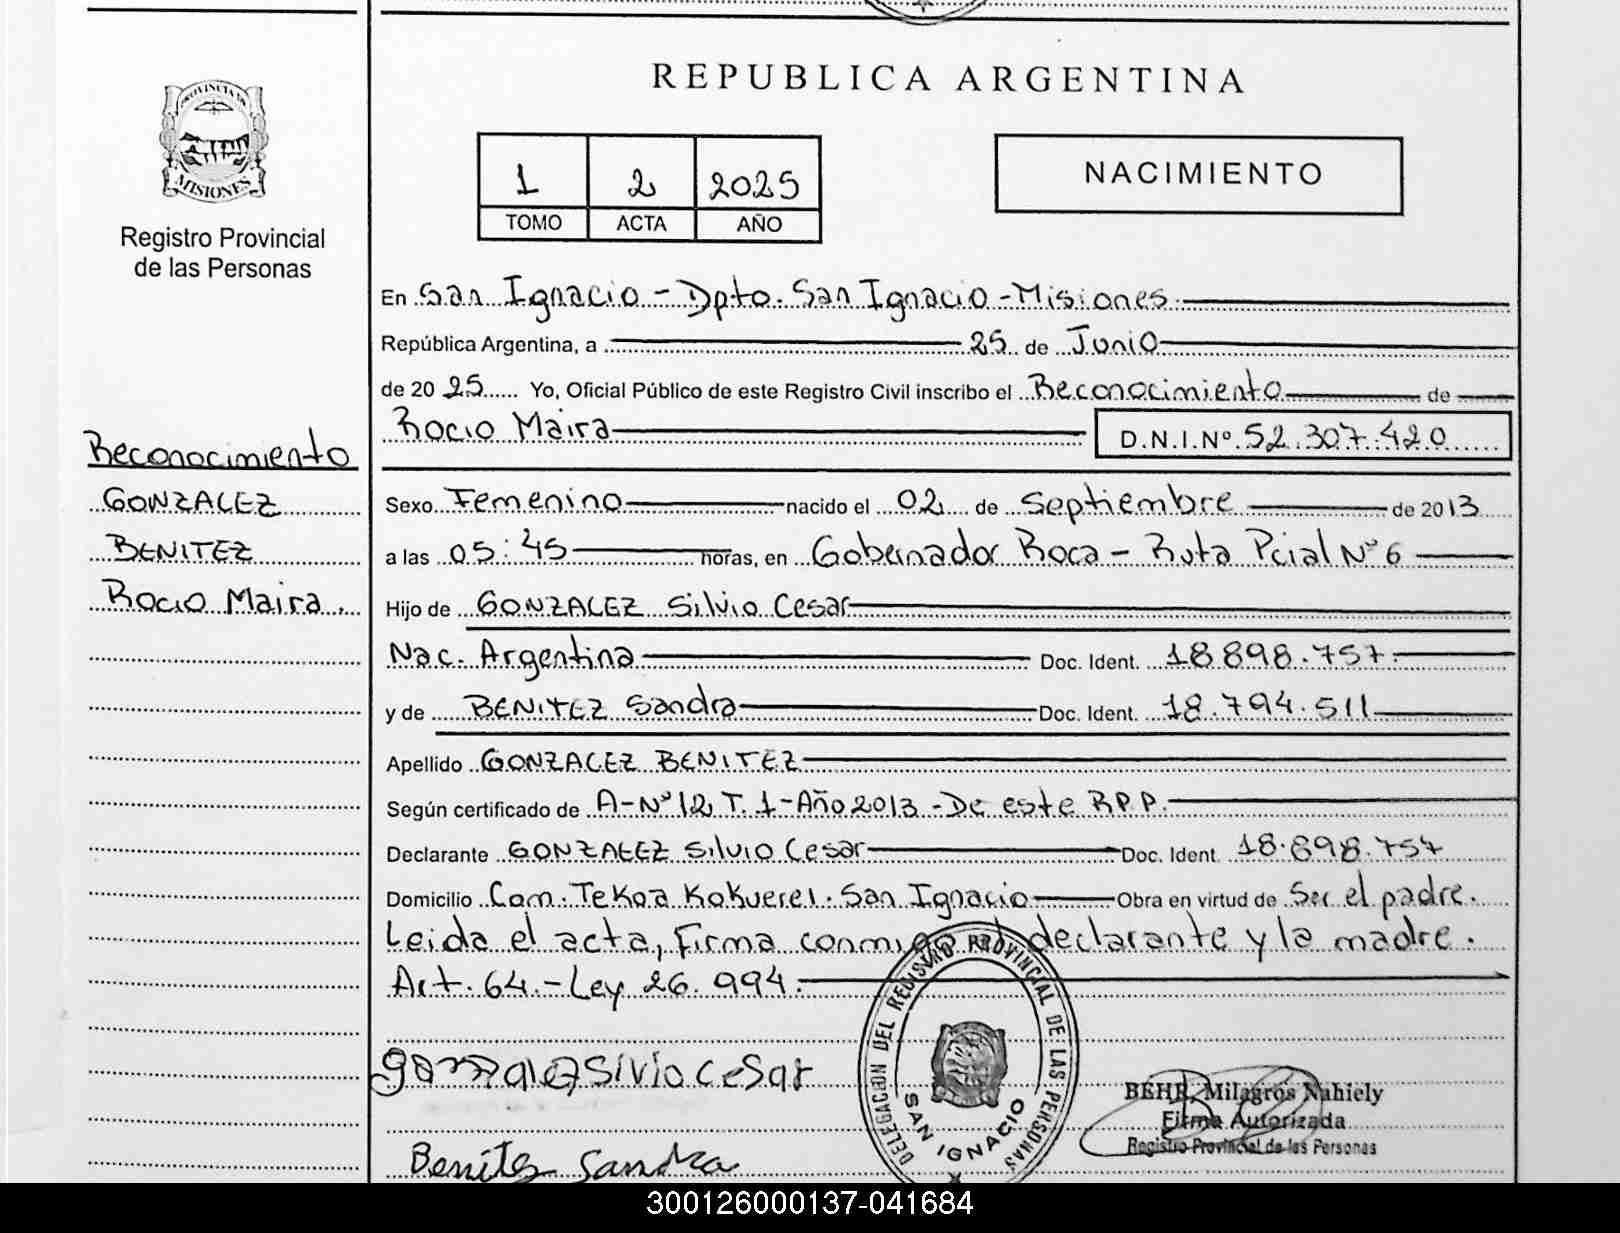 REPUBLICA ARGENTINA
PROVINCIA DE
MISIONES
Registro Provincial
de las Personas
1 2 2025
TOMO ACTA AÑO
NACIMIENTO
En San Ignacio - Dpto. San Ignacio - Misiones
República Argentina, a 25 de Junio
de 20 25 Yo, Oficial Público de este Registro Civil inscribo el Reconocimiento de
Rocio Maira D.N.I.Nº 52.307.420
Reconocimiento
GONZALEZ
BENITEZ
Rocio Maira.
Sexo Femenino nacido el 02 de Septiembre de 2013
a las 05:45 horas, en Gobernador Roca - Ruta Pcial Nº 6
Hijo de GONZALEZ Silvio Cesar
Nac. Argentina Doc. Ident. 18.898.757.
y de BENITEZ Sandra Doc. Ident. 18.794.511
Apellido GONZALEZ BENITEZ
Según certificado de A-Nº12 T.1-Año 2013 - De este R.P.P.
Declarante GONZALEZ Silvio Cesar Doc. Ident. 18.898.757
Domicilio Com. Tekoa Kokuerei. San Ignacio Obra en virtud de Ser el padre.
Leida el acta, firma conmigo el declarante y la madre.
Art. 64.- Ley 26.994.
DELEGACION DEL REGISTRO PROVINCIAL DE LAS PERSONAS
SAN IGNACIO
gonzalez Silvio ceSar
BEHR, Milagros Nahiely
Firma Autorizada
Registro Provincial de las Personas
Benitez Sandra
300126000137-041684